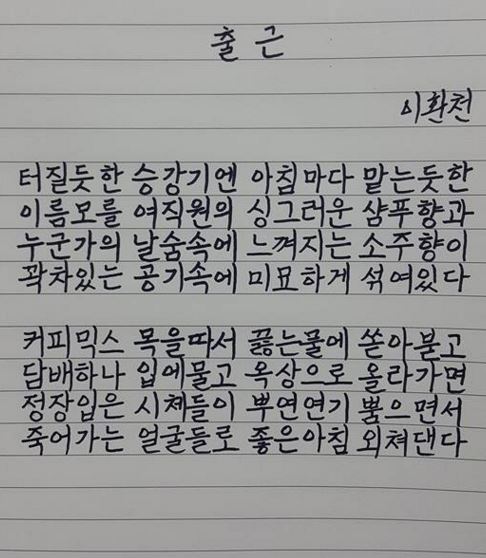 출 근
이환천
터질듯한 승강기엔 아침마다 맡는듯한
이름모를 여직원의 싱그러운 샴푸향과
누군가의 날숨속에 느껴지는 소주향이
꽉차있는 공기속에 미묘하게 섞여있다
커피믹스 목을따서 끓는물에 쏟아붇고
담배하나 입에물고 옥상으로 올라가면
정장입은 시체들이 뿌연연기 뿜으면서
죽어가는 얼굴들로 좋은아침 외쳐댄다